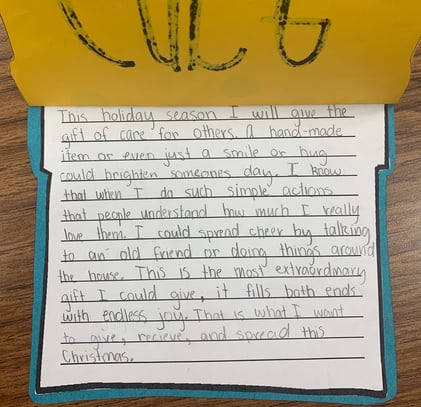 This holiday season I will give the
gift of care for others. A hand-made
item or even just a smile or hug
could brighten someones day. I know
that when I do such simple actions
that people understand how much I really
love them. I could spread cheer by talking
to an old friend or doing things around
the house. This is the most extraordinary
gift I could give, it fills both ends
with endless joy. That is what I want
to give, recieve, and spread this
Christmas.